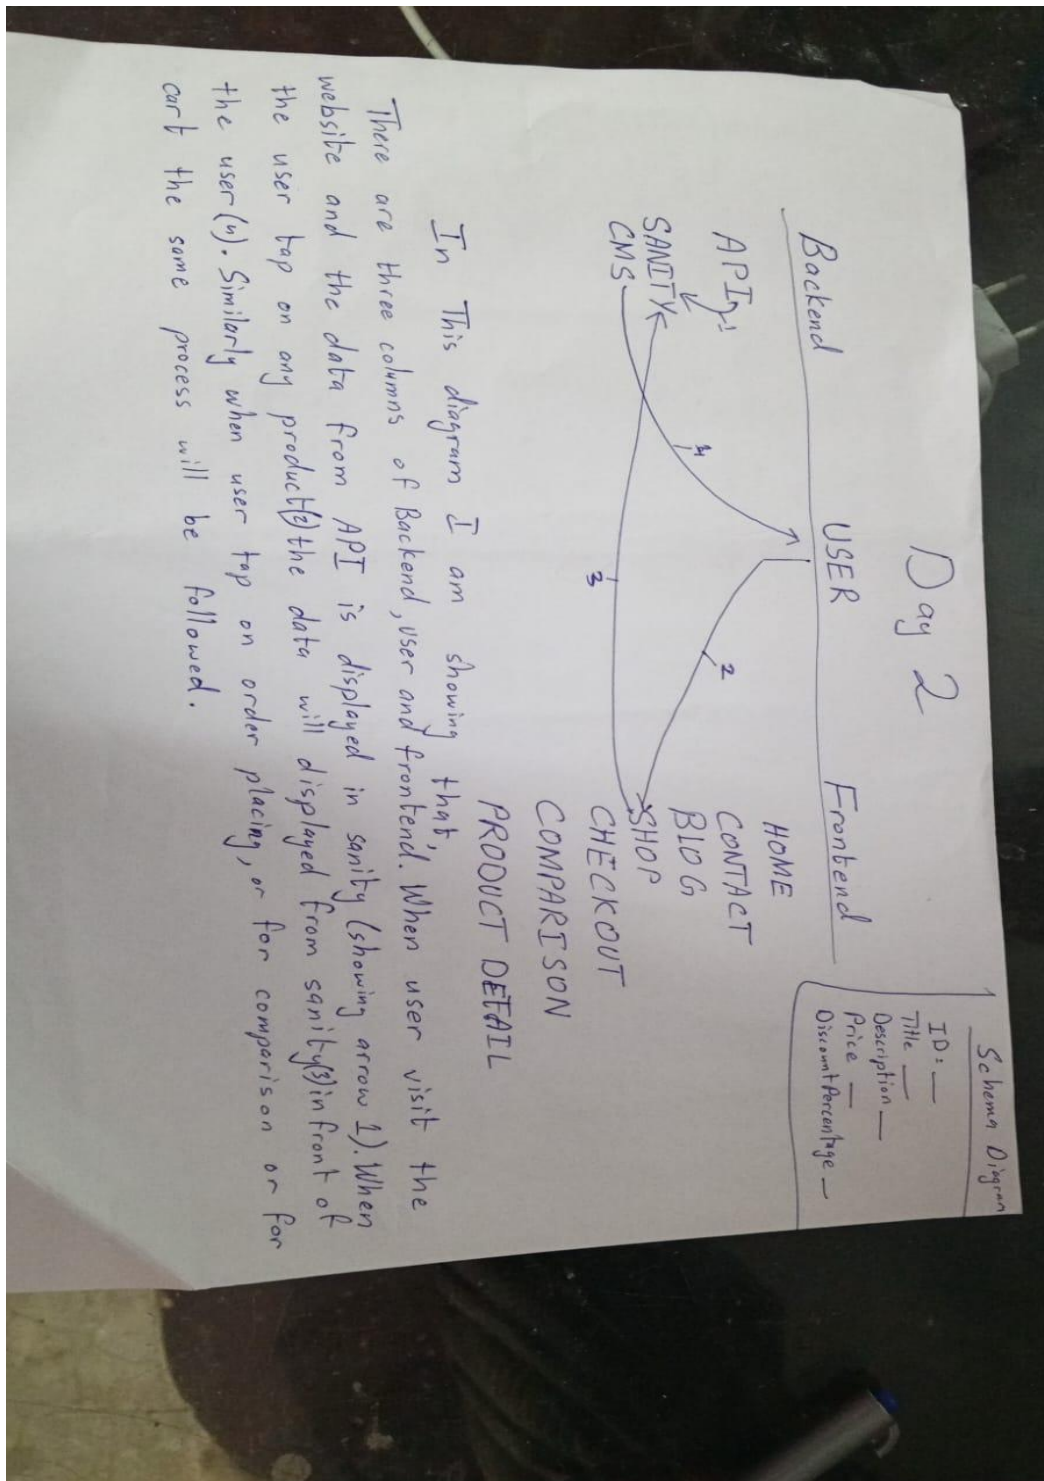 Day 2
Schema Diagram
ID: __
Title __
Description __
Price __
Discount Percentage _
Backend USER Frontend
API 1
SANITY
CMS
4
2
3
HOME
CONTACT
BLOG
SHOP
CHECKOUT
COMPARISON
PRODUCT DETAIL
In This diagram I am showing that,
There are three columns of Backend, user and frontend. When user visit the
website and the data from API is displayed in sanity (showing arrow 1). When
the user tap on any product(2) the data will displayed from sanity(3) in front of
the user (4). Similarly when user tap on order placing, or for comparison or for
cart the same process will be followed.